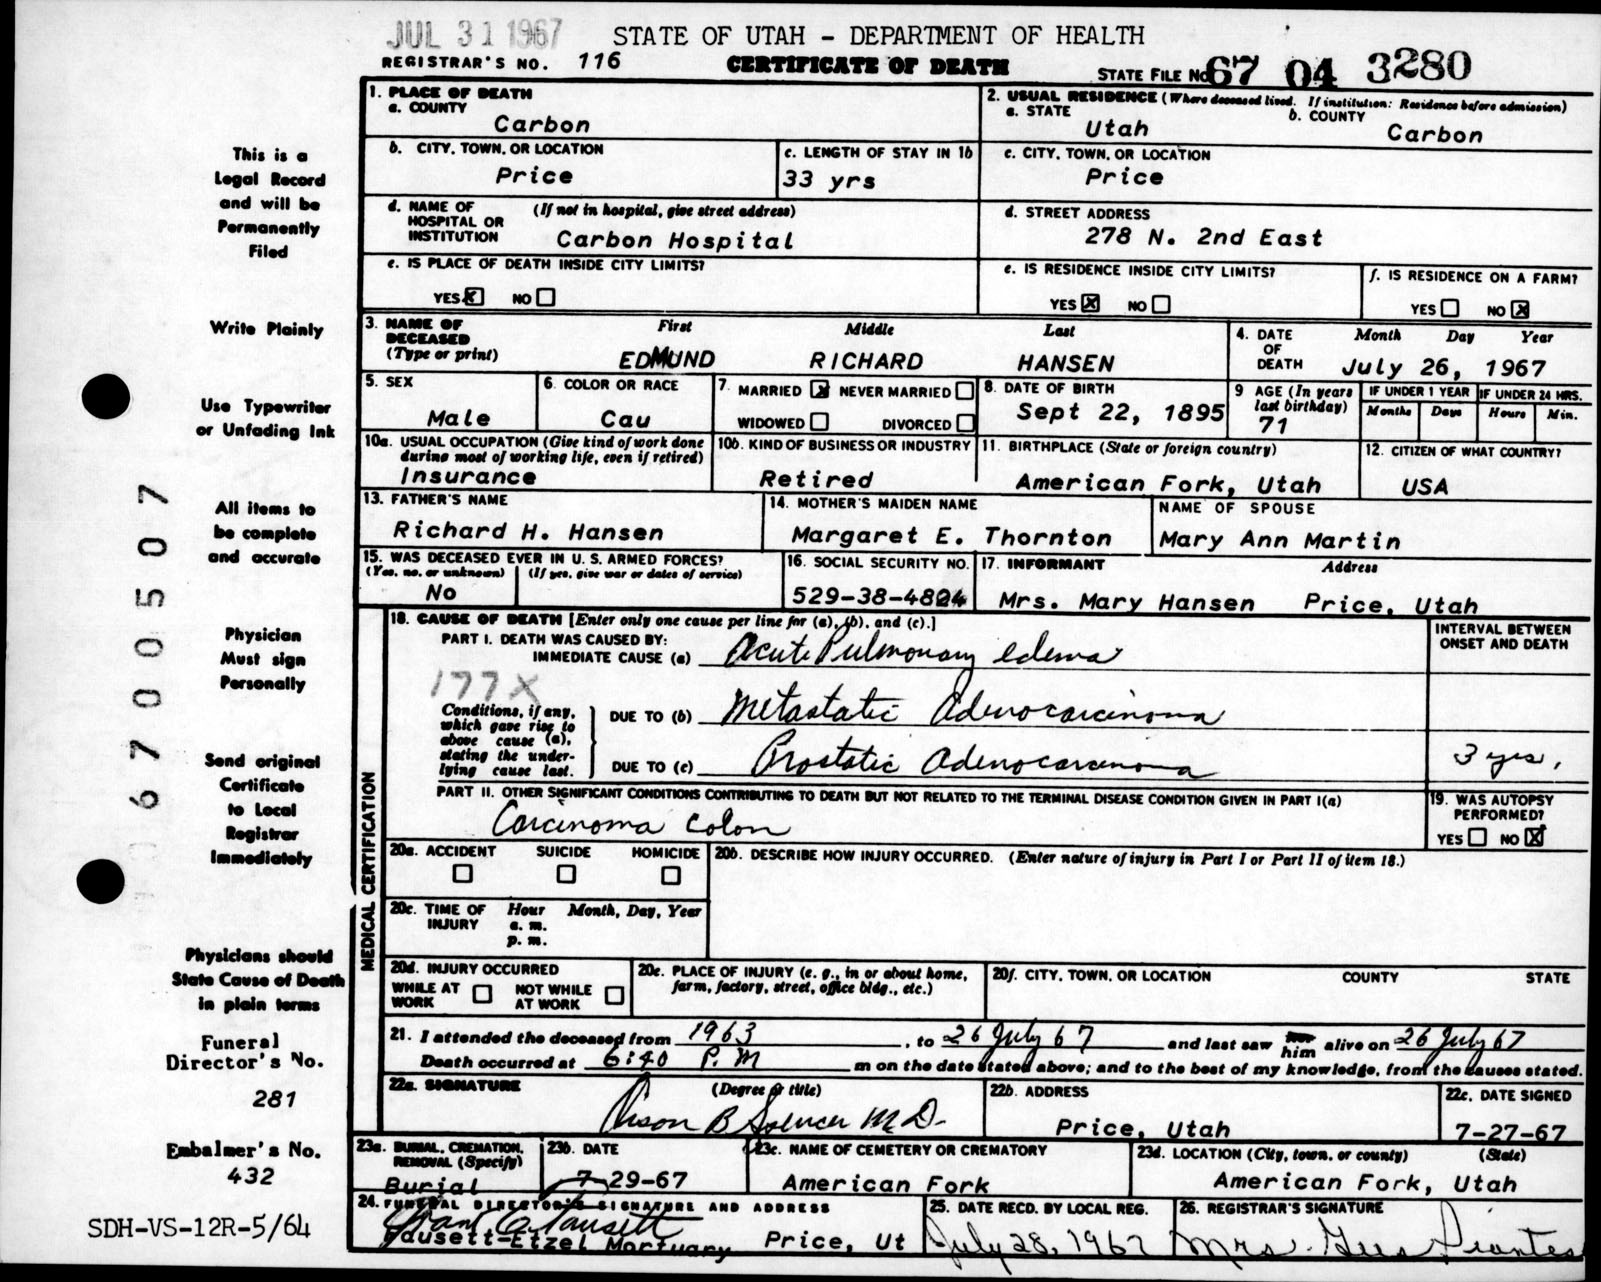 JUL 31 1967 STATE OF UTAH - DEPARTMENT OF HEALTH
REGISTRAR'S NO. 116 CERTIFICATE OF DEATH STATE FILE NO. 67 04 3280
This is a
Legal Record
and will be
Permanently
Filed
Write Plainly
Use Typewriter
or Unfading Ink
All items to
be complete
and accurate
Physician
Must sign
Personally
Send original
Certificate
to Local
Registrar
Immediately
Physicians should
State Cause of Death
in plain terms
Funeral
Director's No.
281
Embalmer's No.
432
SDH-VS-12R-5/64
6700507
1. PLACE OF DEATH
a. COUNTY
Carbon
2. USUAL RESIDENCE (Where deceased lived. If institution: Residence before admission)
a. STATE b. COUNTY
Utah Carbon
b. CITY, TOWN, OR LOCATION c. LENGTH OF STAY IN 1b
Price 33 yrs
c. CITY, TOWN, OR LOCATION
Price
d. NAME OF HOSPITAL OR INSTITUTION (If not in hospital, give street address)
Carbon Hospital
d. STREET ADDRESS
278 N. 2nd East
e. IS PLACE OF DEATH INSIDE CITY LIMITS?
YES X NO
e. IS RESIDENCE INSIDE CITY LIMITS?
YES X NO
f. IS RESIDENCE ON A FARM?
YES NO X
3. NAME OF DECEASED (Type or print) First Middle Last
EDMUND RICHARD HANSEN
4. DATE OF DEATH Month Day Year
July 26, 1967
5. SEX
Male
6. COLOR OR RACE
Cau
7. MARRIED X NEVER MARRIED
WIDOWED DIVORCED
8. DATE OF BIRTH
Sept 22, 1895
9 AGE (In years last birthday)
71
IF UNDER 1 YEAR IF UNDER 24 HRS.
Months Days Hours Min.
10a. USUAL OCCUPATION (Give kind of work done during most of working life, even if retired)
Insurance
10b. KIND OF BUSINESS OR INDUSTRY
Retired
11. BIRTHPLACE (State or foreign country)
American Fork, Utah
12. CITIZEN OF WHAT COUNTRY?
USA
13. FATHER'S NAME
Richard H. Hansen
14. MOTHER'S MAIDEN NAME
Margaret E. Thornton
NAME OF SPOUSE
Mary Ann Martin
15. WAS DECEASED EVER IN U. S. ARMED FORCES?
(Yes, no, or unknown) (If yes, give war or dates of service)
No
16. SOCIAL SECURITY NO.
529-38-4824
17. INFORMANT Address
Mrs. Mary Hansen Price, Utah
MEDICAL CERTIFICATION
18. CAUSE OF DEATH [Enter only one cause per line for (a), (b), and (c).]
INTERVAL BETWEEN
ONSET AND DEATH
PART I. DEATH WAS CAUSED BY:
IMMEDIATE CAUSE (a) Acute Pulmonary edema
177X
Conditions, if any,
which gave rise to
above cause (a),
stating the under-
lying cause last.
DUE TO (b) Metastatic Adenocarcinoma
DUE TO (c) Prostatic Adenocarcinoma 3 yrs.
PART II. OTHER SIGNIFICANT CONDITIONS CONTRIBUTING TO DEATH BUT NOT RELATED TO THE TERMINAL DISEASE CONDITION GIVEN IN PART I(a)
Carcinoma colon
19. WAS AUTOPSY
PERFORMED?
YES NO X
20a. ACCIDENT SUICIDE HOMICIDE
20b. DESCRIBE HOW INJURY OCCURRED. (Enter nature of injury in Part I or Part II of item 18.)
20c. TIME OF INJURY Hour Month, Day, Year
a. m.
p. m.
20d. INJURY OCCURRED
WHILE AT WORK NOT WHILE AT WORK
20e. PLACE OF INJURY (e. g., in or about home, farm, factory, street, office bldg., etc.)
20f. CITY, TOWN, OR LOCATION COUNTY STATE
21. I attended the deceased from 1963, to 26 July 67 and last saw him alive on 26 July 67
Death occurred at 6:40 P.M m on the date stated above; and to the best of my knowledge, from the causes stated.
22a. SIGNATURE (Degree or title)
Orson B Spencer M D.
22b. ADDRESS
Price, Utah
22c. DATE SIGNED
7-27-67
23a. BURIAL, CREMATION, REMOVAL (Specify)
Burial
23b. DATE
7-29-67
23c. NAME OF CEMETERY OR CREMATORY
American Fork
23d. LOCATION (City, town, or county) (State)
American Fork, Utah
24. FUNERAL DIRECTOR'S SIGNATURE AND ADDRESS
Fausett-Etzel Mortuary Price, Ut
25. DATE RECD. BY LOCAL REG.
July 28, 1967
26. REGISTRAR'S SIGNATURE
Mrs. Gus